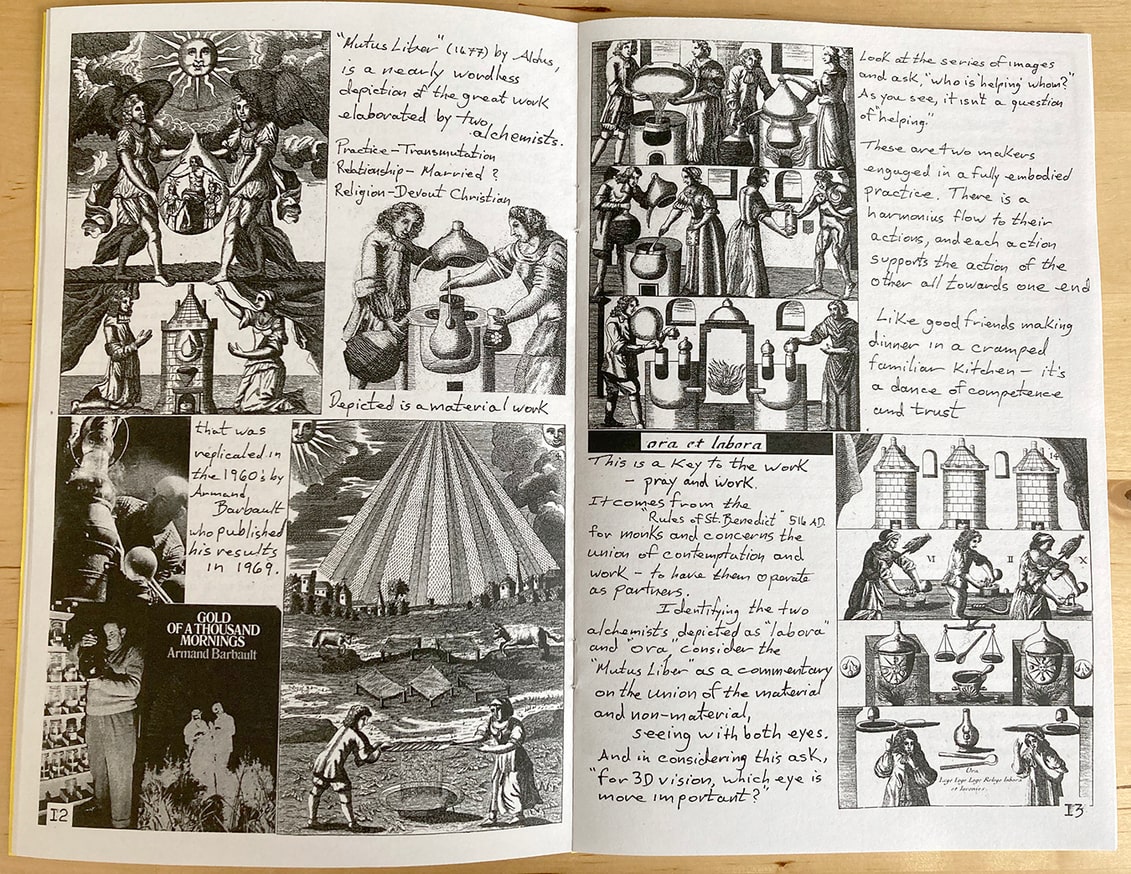 "Mutus Liber" (1677) by Aldus,
is a nearly wordless
depiction of the great work
elaborated by two
alchemists.
Practice-Transmutation
Relationship- Married ?
Religion-Devout Christian
Depicted is a material work
that was
replicated in
the 1960's by
Armand,
Barbault
who published
his results
in 1969.
GOLD
OF A THOUSAND
MORNINGS
Armand Barbault
12
Look at the series of images
and ask, "who is helping whom?"
As you see, it isn't a question
of "helping."
These are two makers
engaged in a fully embodied
practice. There is a
harmonius flow to their
actions, and each action
supports the action of the
other all towards one end
Like good friends making
dinner in a cramped
familiar kitchen – it's
a dance of competence
and trust
ora et labora
This is a key to the work
- pray and work.
It comes from the
"Rules of St. Benedict" 516 AD.
for monks and concerns the
union of contemptation and
work – to have them operate
as partners.
Identifying the two
alchemists depicted as "labora"
and "ora, consider the
"Mutus Liber" as a commentary
on the union of the material
and non-material,
seeing with both eyes.
And in considering this ask,
"for 3D vision, which eye is
more important?"
14
VI
II
X
Ora
Lege Lege Lege Relege labora
et Invenies.
13